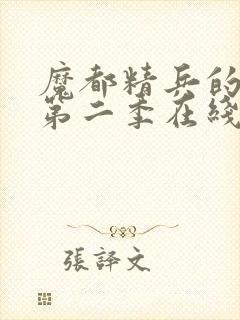 魔都精兵的
第二季在綫
張譯文